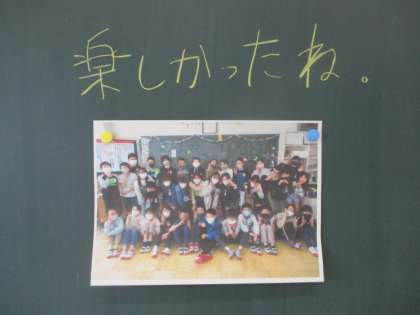 楽しかったね。